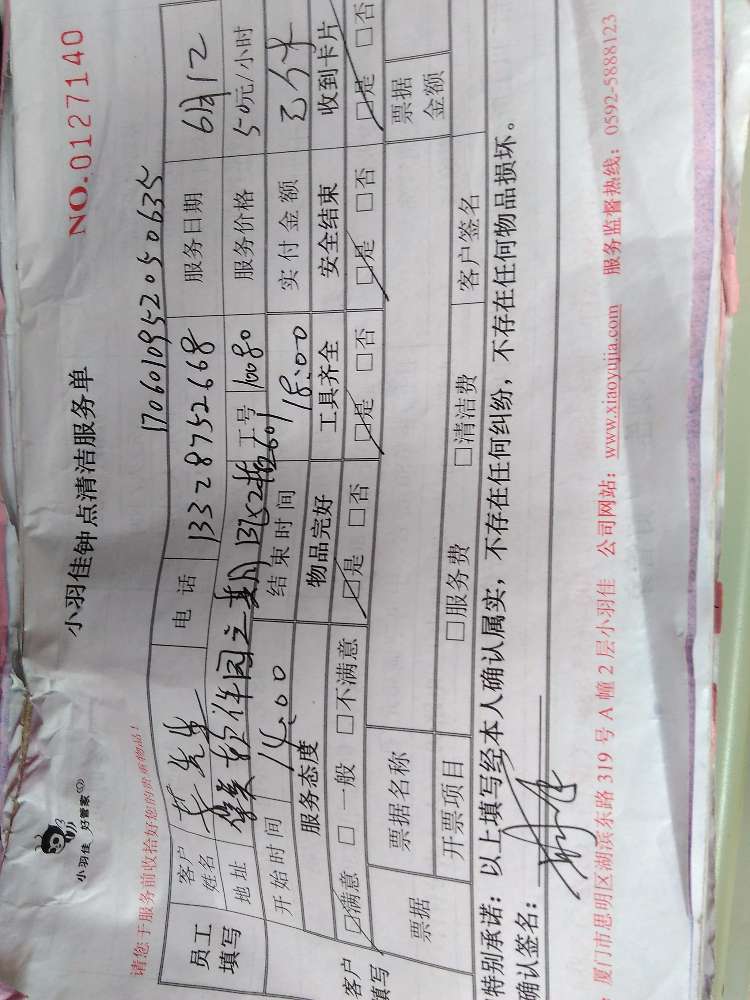 小羽佳 好管家
小羽佳钟点清洁服务单
NO.0127140
请您于服务前收拾好您的贵重物品!
1706010952050635
员工填写 客户姓名 先生 电话 13328752668 服务日期 6月12
地址 软件园 工号 10080 服务价格 50元/小时
开始时间 14:00 结束时间 18:00 实付金额
客户填写 服务态度 物品完好 工具齐全 安全结束 收到卡片
□满意 □一般 □不满意 □是 □否 □是 □否 □是 □否 □是 □否
票据 票据名称 票据金额
开票项目 □服务费 □清洁费 客户签名
特别承诺:以上填写经本人确认属实,不存在任何纠纷,不存在任何物品损坏。
确认签名:
厦门市思明区湖滨东路 319 号 A 幢 2 层小羽佳 公司网站:www.xiaoyujia.com 服务监督热线:0592-5888123